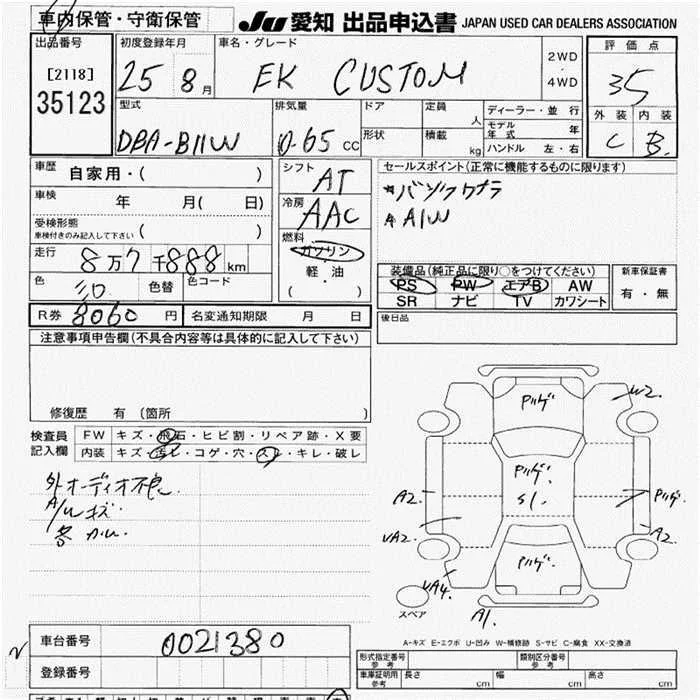 車内保管・守衛保管
JU 愛知 出品申込書 JAPAN USED CAR DEALERS ASSOCIATION
出品番号 初度登録年月 車名・グレード 評価点
[2118] 25 8月 EK CUSTOM 2WD・4WD 35
35123
型式 排気量 ドア 定員 人 ディーラー・並行 外装 内装
DBA-B11W 0.65 CC 形状 積載 kg モデル年式 年 C B
ハンドル 左・右
車歴 自家用・( ) シフト AT セールスポイント(正常に機能するものに限ります)
車検 年 月( 日) 冷房 AAC
A/W
受検形態
車検付きのみ記入して下さい ( ) 燃料
走行 8万7千888km ガソリン 装備品(純正品に限り○をつけてください) 新車保証書
色 色替 色コード 軽・油 PS PW エアB AW 有・無
( ・ ) SR ナビ TV カワシート
R券 8060円 名変通知期限 月 日 後日品
注意事項申告欄(不具合内容等は具体的に記入して下さい)
修復歴 有 (箇所 )
検査員 FW キズ・飛石・ヒビ割・リペア跡・X要
記入欄 内装 キズ・汚レ・コゲ・穴・スレ・キレ・破レ
外オーディオ不良.
A/W キズ.
PリゲW2.
Pリゲ.
S1.
A2. Pリゲ.
A2.
Pリゲ.
スペア
A1.
A-キズ E-エクボ U-凹み W-補修跡 S-サビ C-腐食 XX-交換済
車台番号 0021380
登録番号
形式指定番号 参考 類別区分番号 参考
車庫証明用 参考 長さ cm 幅 cm 高さ cm